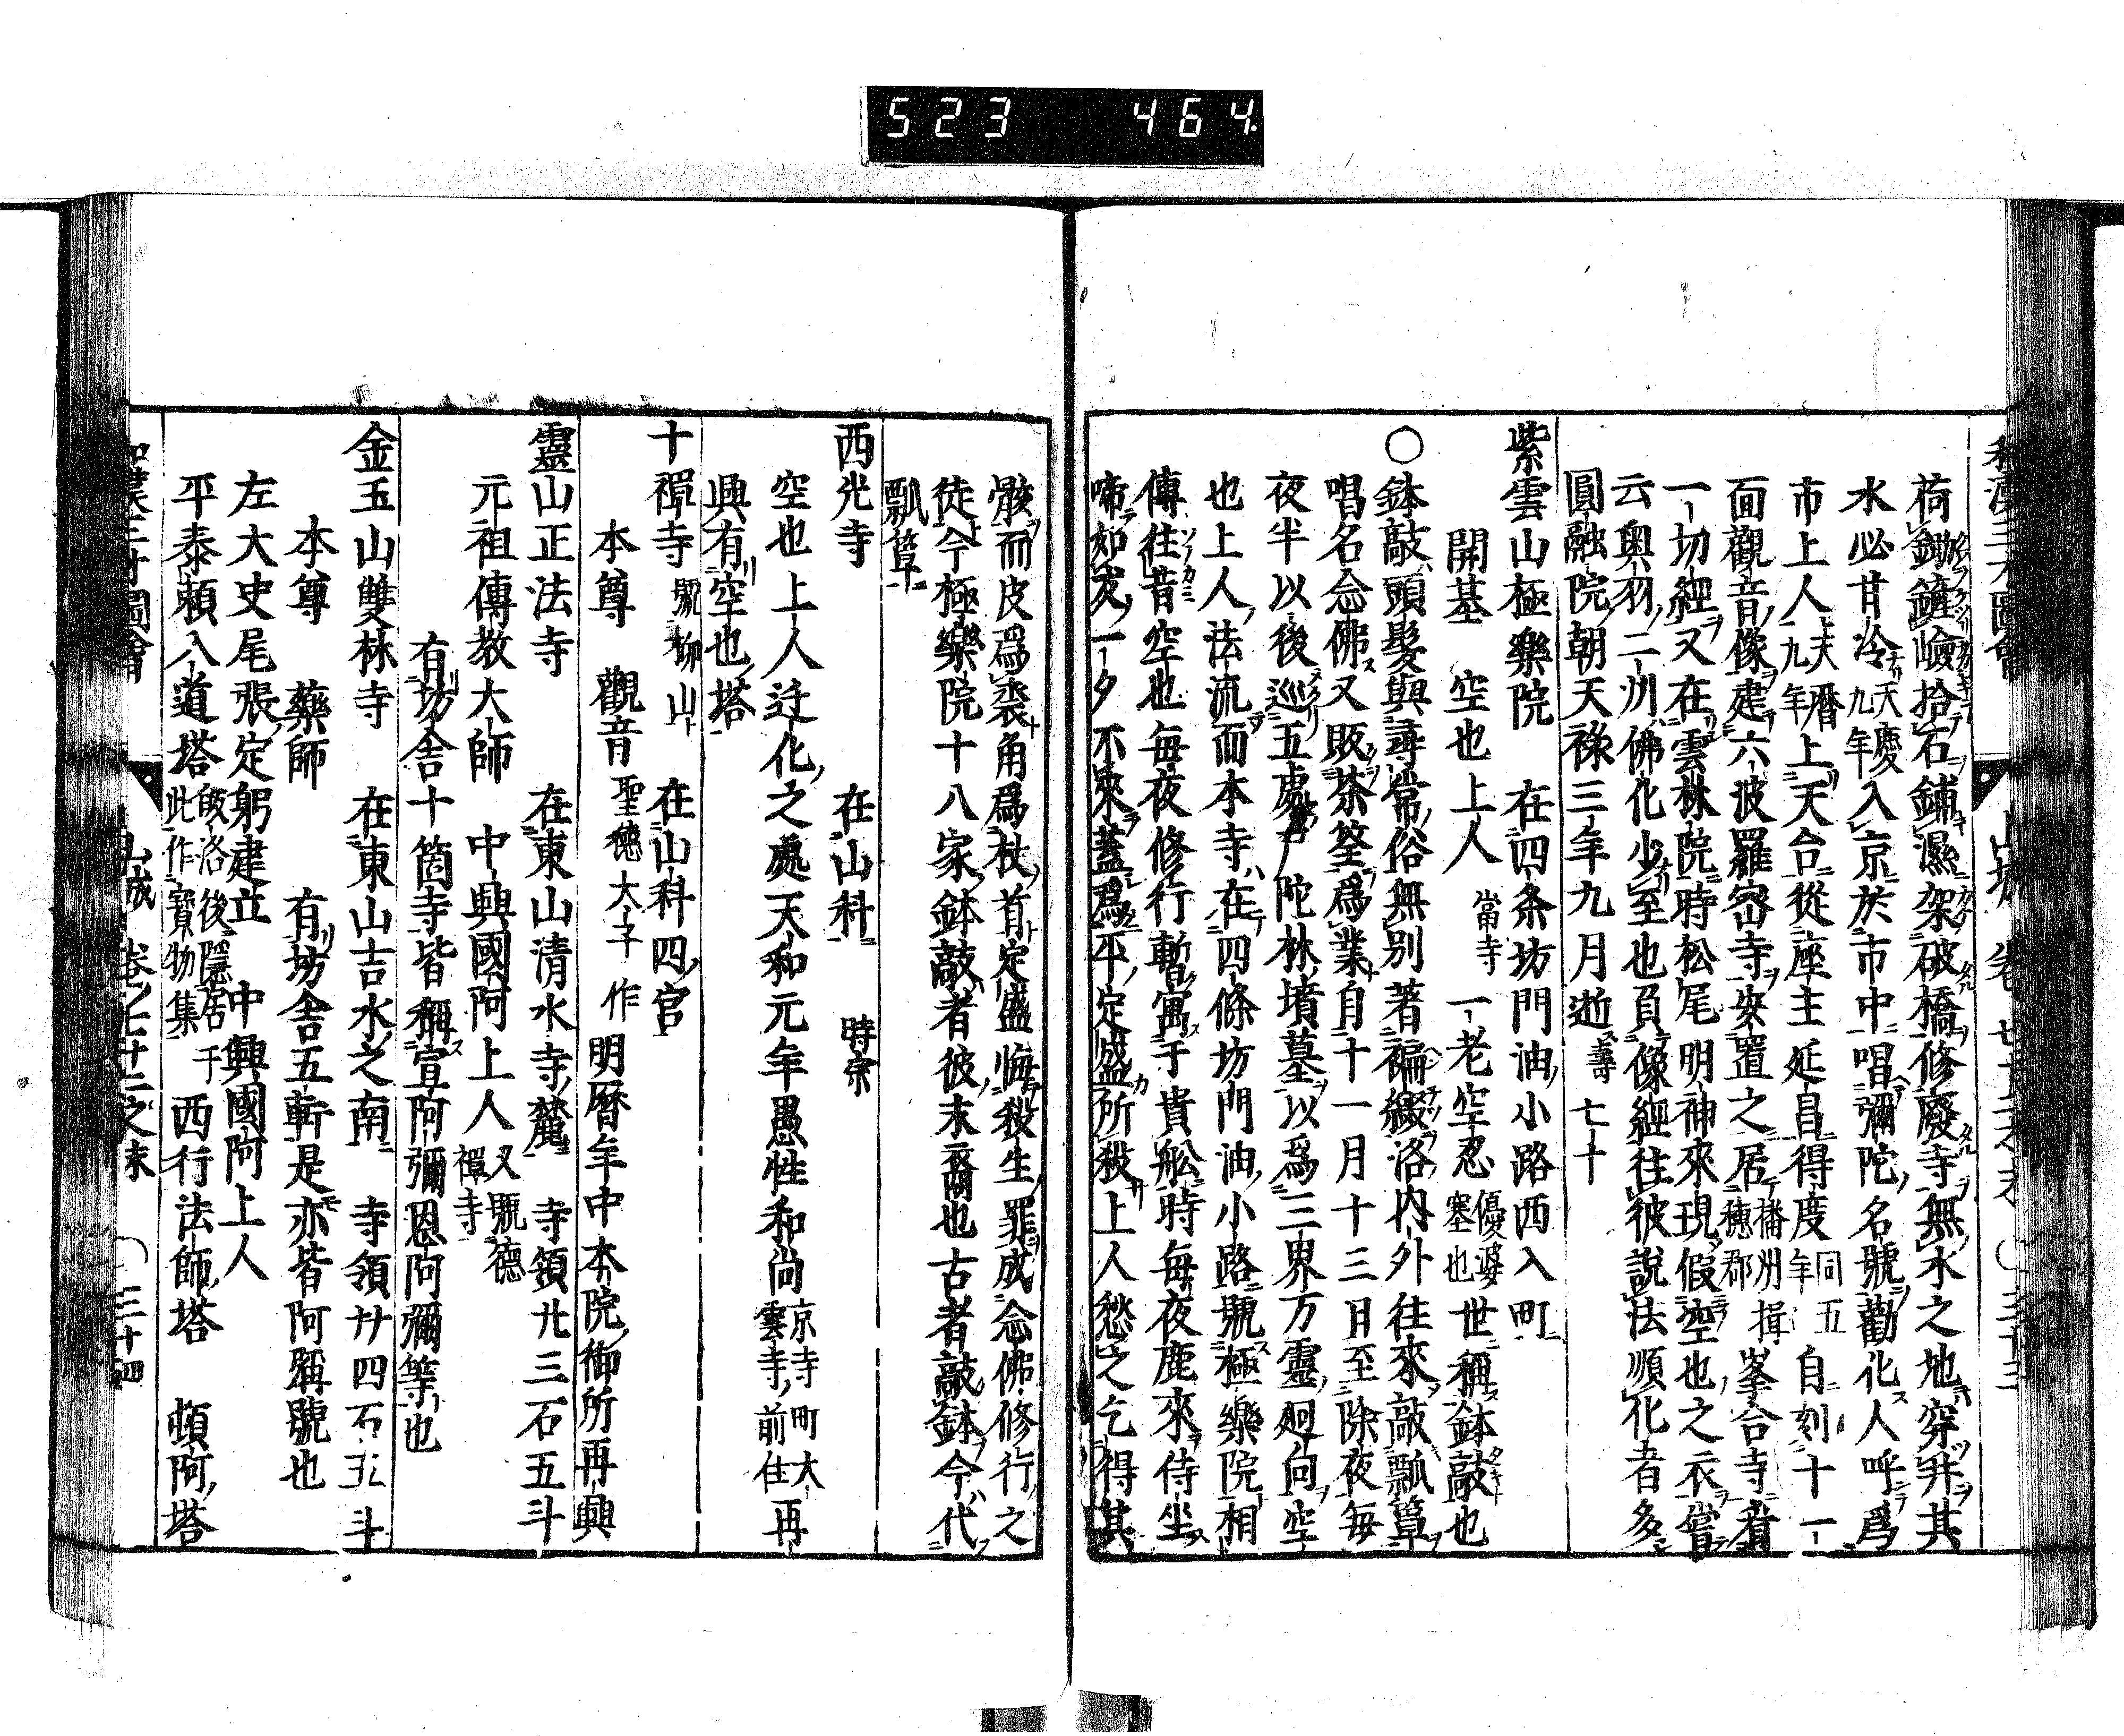 523 464.
和漢三才圖會 山城 卷 七十二之末 三十三
荷鋤鑱嶮拾石鋪濕架破橋修廢寺無水之地穿井其
水必甘冷天慶九年入京於市中唱彌陀名號勸化人呼爲
市上人天曆九年上天台從座主延昌得度同五年自刻十一
面觀音像建六波羅密寺安置之居播州揖穗郡峯合寺看
一切經又在雲林院時松尾明神來現假空也之衣嘗
云奧羽二州佛化少至也負像經往彼說法順化者多
圓融院朝天祿三年九月逝壽七十
紫雲山極樂院 在四条坊門油小路西入町
開基 空也上人 當寺一老空忍優婆塞也世稱鉢敲也
〇鉢敲頭髮與尋常俗無別著褊綴洛内外往來敲瓢簞
唱名念佛又販茶筌爲業自十一月十三日至除夜每
夜半以後巡五處陀林墳墓以爲三界万靈廻向空
也上人法流而本寺在四條坊門油小路號極樂院相
傳往昔空也每夜修行暫寓于貴舩時每夜鹿來侍坐
啼如友一夕不來蓋爲平定盛所殺上人愁之乞得其
骸而皮爲裘角爲杖首定盛悔殺生罪成念佛修行之
徒今極樂院十八家鉢敲者彼末裔也古者敲鉢今代
瓢簞
西光寺 在山科 時宗
空也上人迁化之處天和元年愚性和尚京寺町大雲寺前住再
興有空也塔
十禪寺 號柳山 在山科四宮
本尊 觀音聖德太子作 明曆年中本院御所再興
靈山正法寺 在東山清水寺麓 寺領廿三石五斗
元祖傳教大師 中興國阿上人又號德禪寺
有坊舍十箇寺皆稱宣阿彌恩阿彌等也
金玉山雙林寺 在東山吉水之南 寺領廿四石五斗
本尊 藥師 有坊舍五軒是亦皆阿稱號也
左大史尾張定躬建立 中興國阿上人
平泰賴入道塔皈洛後隱居于此作寶物集 西行法師塔 頓阿塔
和漢三才圖會 山城 卷之七十二之末 三十四